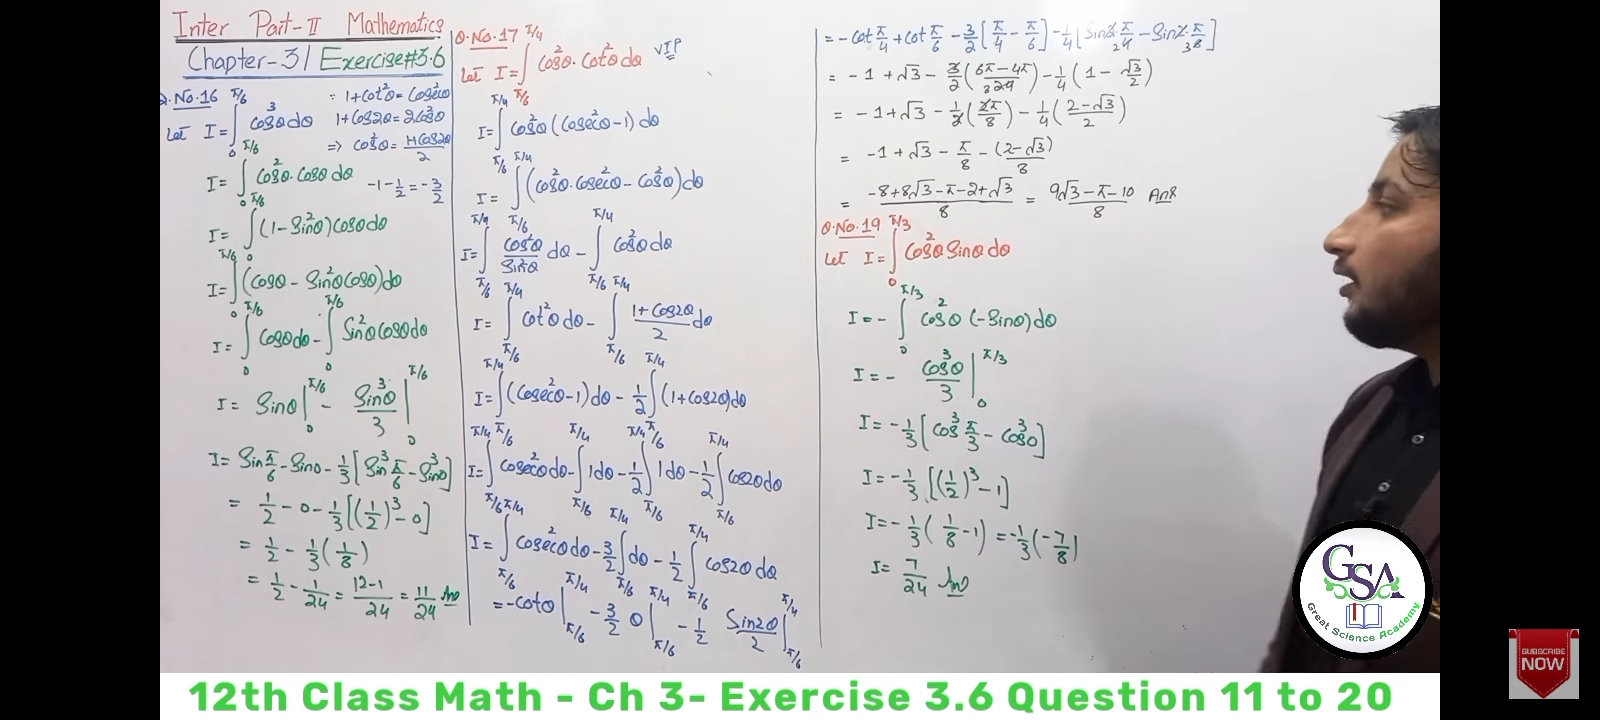 Inter Part-II Mathematics
Chapter-3/Exercise#3.6
Q.No.16
∵ 1+Cot²θ=Cosec²θ
1+Cos2θ=2Cos²θ
⇒ Cos²θ = (1+Cos2θ)/2
-1-1/2=-3/2
Let I=∫₀^{π/6} Cos³θdθ
I=∫₀^{π/6} Cos²θ.Cosθdθ
I=∫₀^{π/6} (1-Sin²θ)Cosθdθ
I=∫₀^{π/6} (Cosθ - Sin²θCosθ)dθ
I=∫₀^{π/6} Cosθdθ - ∫₀^{π/6} Sin²θCosθdθ
I= Sinθ|₀^{π/6} - Sin³θ/3|₀^{π/6}
I= Sin π/6 - Sin0 - 1/3[Sin³ π/6 - Sin³0]
= 1/2 - 0 - 1/3[(1/2)³-0]
= 1/2 - 1/3(1/8)
= 1/2 - 1/24 = (12-1)/24 = 11/24 Ans
Q.No.17
Let I=∫_{π/6}^{π/4} Cos²θ.Cot²θdθ VIP
I=∫_{π/6}^{π/4} Cos²θ(Cosec²θ-1)dθ
I=∫_{π/6}^{π/4} (Cos²θ.Cosec²θ-Cos²θ)dθ
I=∫_{π/6}^{π/4} Cos²θ/Sin²θ dθ - ∫_{π/6}^{π/4} Cos²θdθ
I=∫_{π/6}^{π/4} Cot²θdθ - ∫_{π/6}^{π/4} (1+Cos2θ)/2 dθ
I=∫_{π/6}^{π/4} (Cosec²θ-1)dθ - 1/2∫_{π/6}^{π/4} (1+Cos2θ)dθ
I=∫_{π/6}^{π/4} Cosec²θdθ-∫_{π/6}^{π/4} 1dθ-1/2∫_{π/6}^{π/4} 1dθ-1/2∫_{π/6}^{π/4} Cos2θdθ
I=∫_{π/6}^{π/4} Cosec²θdθ-3/2∫_{π/6}^{π/4} dθ-1/2∫_{π/6}^{π/4} Cos2θdθ
=-Cotθ|_{π/6}^{π/4} - 3/2 θ|_{π/6}^{π/4} - 1/2 Sin2θ/2|_{π/6}^{π/4}
= -Cot π/4 + Cot π/6 - 3/2[π/4 - π/6] - 1/4[Sin2.π/4 - Sin2.π/6]
= -1+√3 - 3/2((6π-4π)/24) - 1/4(1-√3/2)
= -1+√3 - 1/2(2π/8) - 1/4((2-√3)/2)
= -1+√3 - π/8 - (2-√3)/8
= (-8+8√3-π-2+√3)/8 = (9√3-π-10)/8 Ans
Q.No.19
Let I=∫₀^{π/3} Cos²θSinθdθ
I=-∫₀^{π/3} Cos²θ(-Sinθ)dθ
I=- Cos³θ/3|₀^{π/3}
I=-1/3[Cos³ π/3 - Cos³0]
I=-1/3[(1/2)³-1]
I=-1/3(1/8-1)=-1/3(-7/8)
I= 7/24 Ans
GSA
Great Science Academy
SUBSCRIBE
NOW
12th Class Math - Ch 3- Exercise 3.6 Question 11 to 20